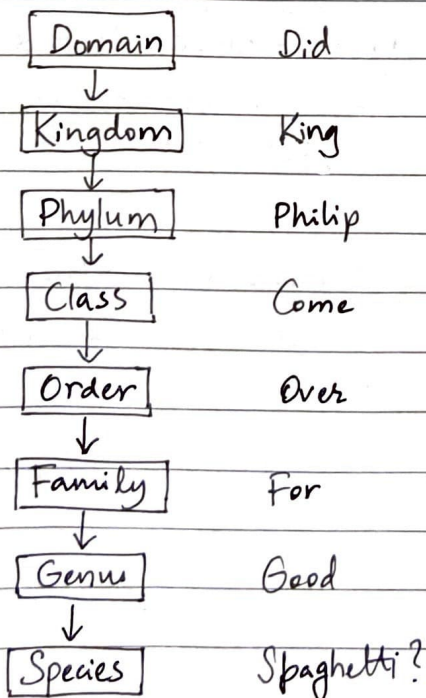 Domain Did
Kingdom King
Phylum Philip
Class Come
Order Over
Family For
Genus Good
Species Spaghetti?